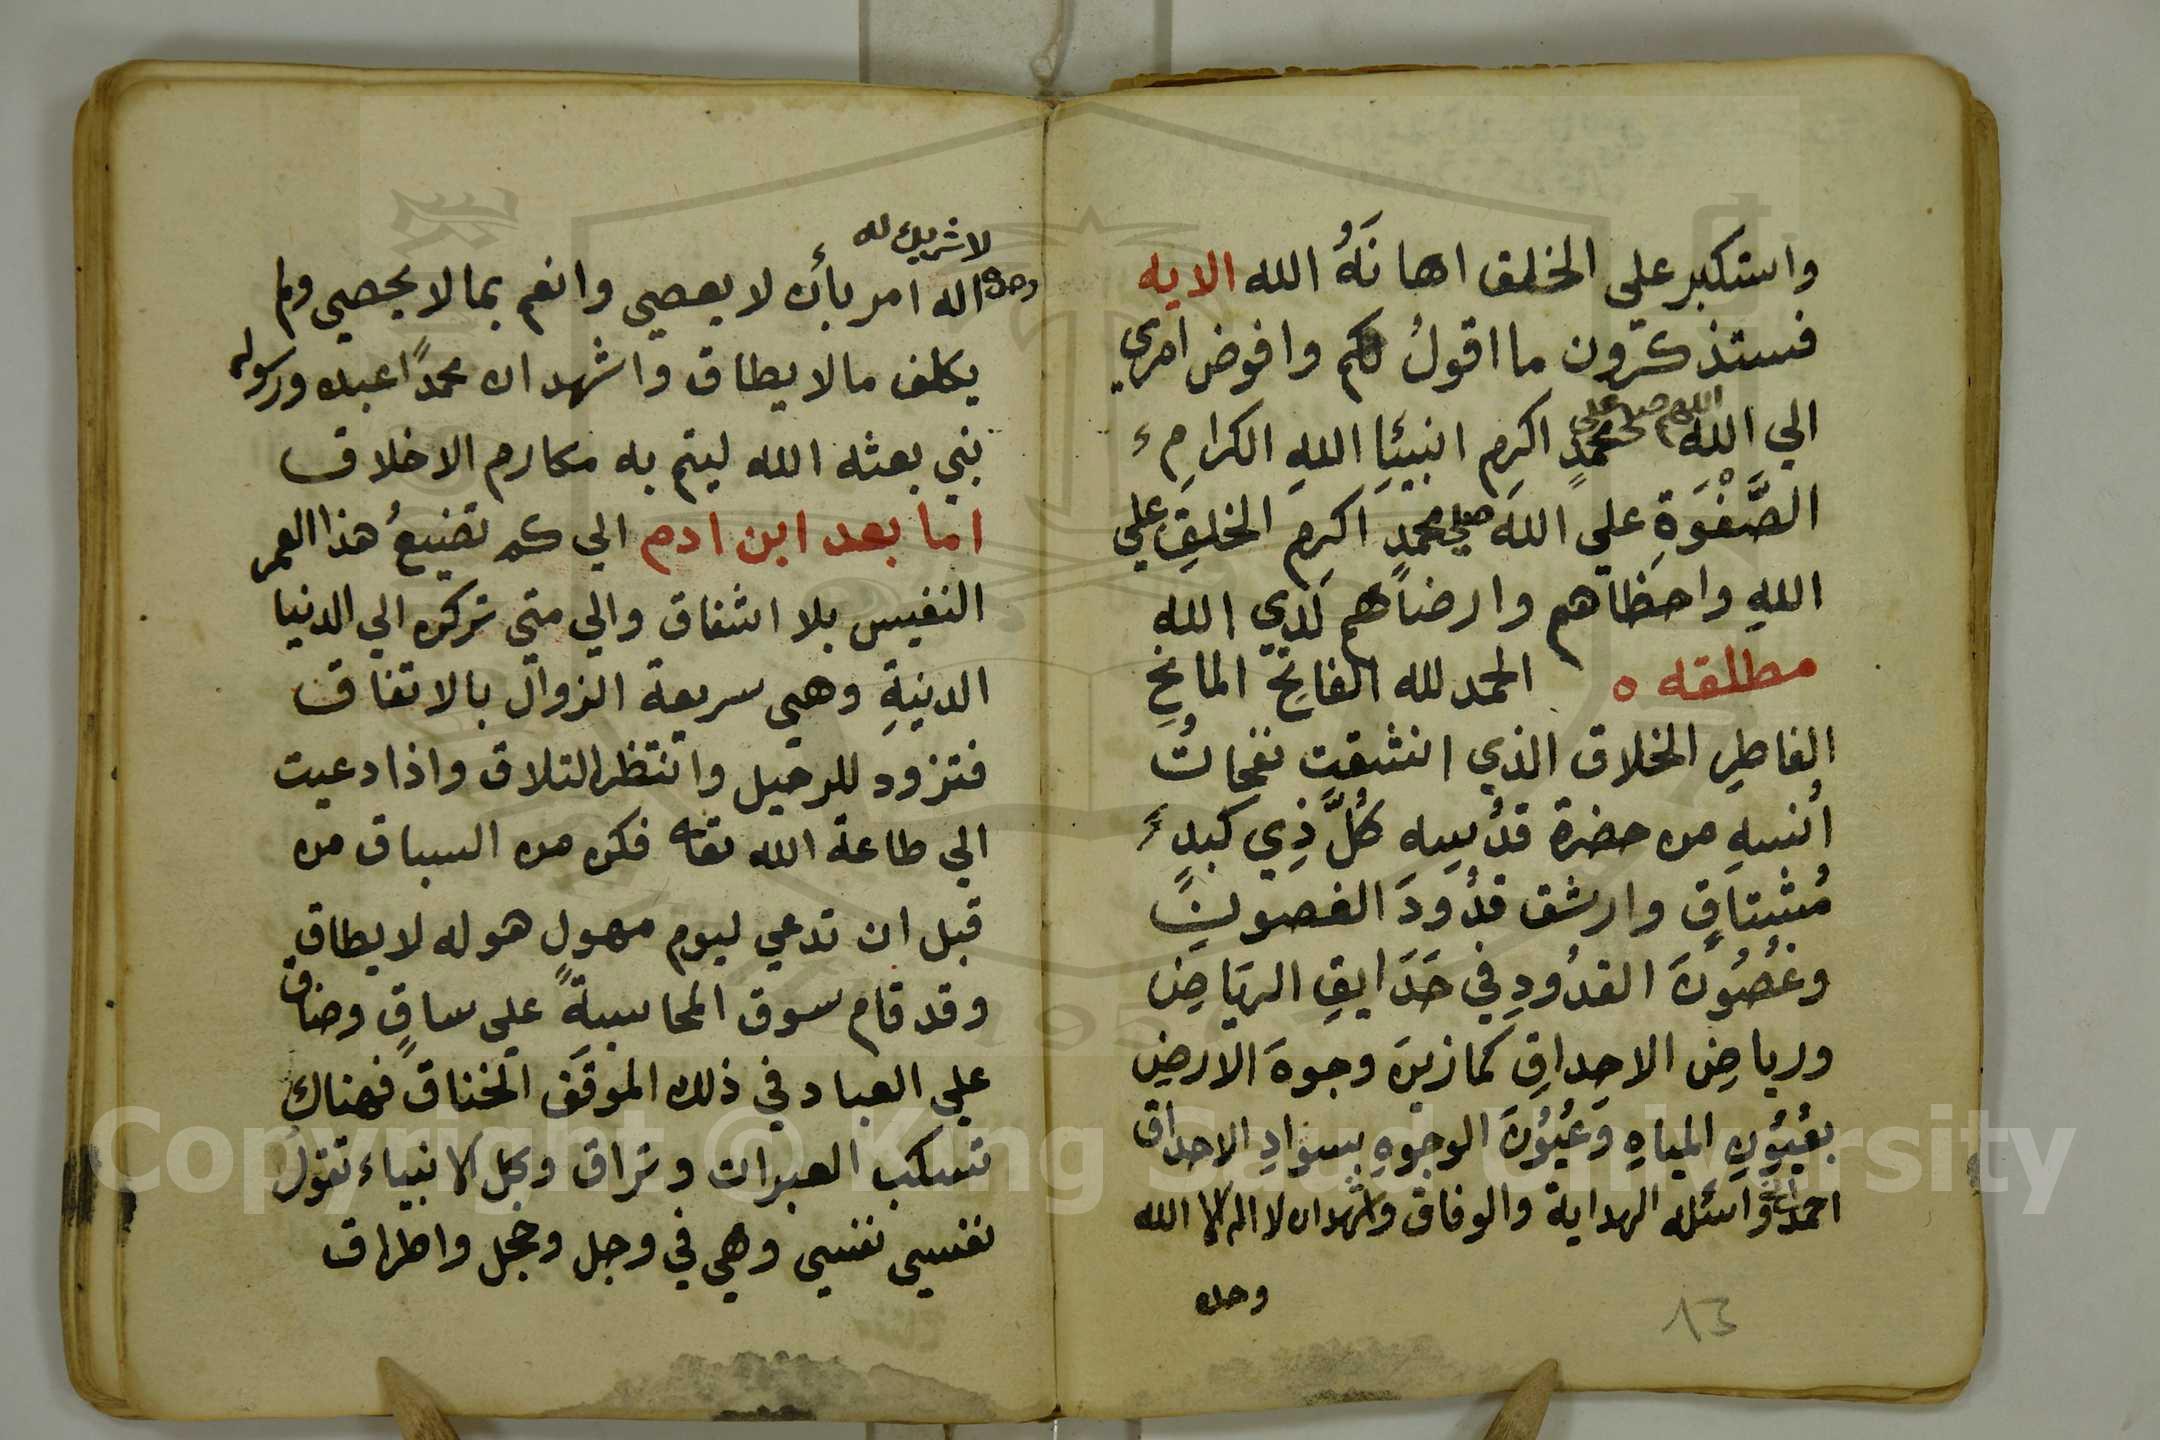 واستكبر علي الخلق اهانَهُ الله الايه
فستذكرون ما اقولُ لكم وافوض امري
الي اللهِ اللهم صل علي محمدٍ اكرِم انبيَاِ اللهِ الكرامِ
الصَّفْوَةِ علي اللهَ صلي محمدٍ اكرِم الخلقِ علي
اللهِ واحظاهم وارضاهم لَدي الله
مطلقه ه الحمد لله الفاتحِ المانحِ
الفاطرِ الخلاق الذي انشقت نفحاتُ
اُنسهِ من حضرة قدُسِهِ كُلَّ ذِي كبدٍ
مُشتاقٍ وارشق قدُودَ الغصونِ
وغُصُونَ القدُودِ في حَدَايقِ الريَاضِ
ورياضِ الاحداقِ كما زينَ وجوهَ الارضِ
بعُيُونِ المياهِ وَعُيُونَ الوجوهِ بسوادِ الاحداق
احمده واسئله الهداية والوفاق واشهد ان لا اله الا الله
وحده
13
لا شريك له
وحده اله امر بأن لا يعصي وانعم بما لا يحصي ولم
يكلف مالا يطاق واشهد ان محمدًا عبده ورسوله
نبي بعثه الله ليتم به مكارم الاخلاق
اما بعد ابن ادم الي كم تضيعُ هذا العمر
النفيس بلا اشفاق والي متي تركن الي الدنيا
الدنيةِ وهي سريعة الزوال بالاتفاق
فتزود للرحيل وانتظر التلاق واذا دعيت
الي طاعة الله تعا فكن من السباق من
قبل ان تدعي ليوم مهولٍ هوله لا يطاق
وقد قام سوق المحاسبةً علي ساقٍ وضاق
علي العباد في ذلك الموقف الخناق فهناك
تسكب العبرات وتراق وكل الانبياء تقول
نفسي نفسي وهي في وجل وخجل واطراق
Copyright © King Saud University